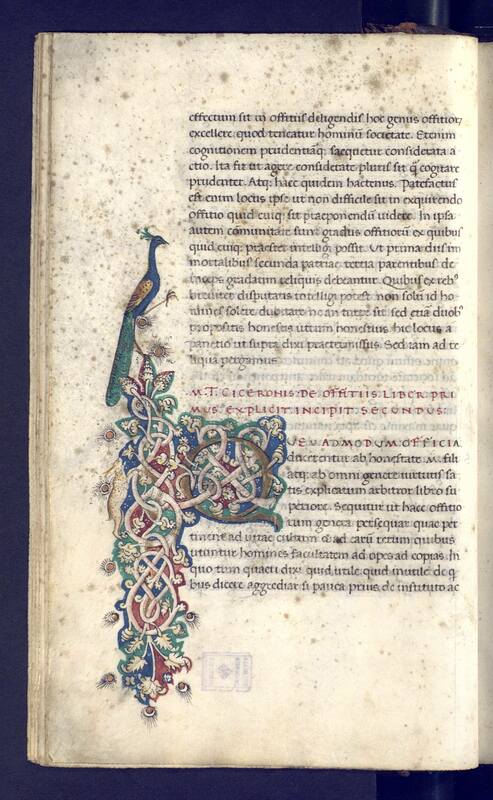 effectum sit in offitiis deligendis hoc genus offitior,
excellere, quod teneatur hominū societate. Etenim
cognitionem prudentiāq; saequetur considerata a
ctio. Ita fit ut agere considerate pluris sit q̄ cogitare
prudenter. Atq; haec quidem hactenus. Patefactus
est enim locus ipse ut non difficile sit in exquirendo
offitio quid cuiq; sit praeponendū videre. In ipsa
autem comunitate sunt gradus offitiorū ex quibus
quid cuiq; praestet intelligi possit. Ut prima diis im
mortalibus secunda patriae, tertia parentibus de
inceps gradatim reliquis debeantur. Quibus ex reb⁹
breviter disputatis intelligi potest non solū id ho
mines solere dubitare
propositis honestis utrum honestius hic locus a
panetio ut supra dixi praetermissus. Sed iam ad re
liqua pergamus
M. T. CICERONIS. DE. OFFITIIS. LIBER. PRI
MUS. EXPLICIT. INCIPIT. SECUNDUS:
QUEVADMODUM. OFFICIA
ducerentur ab honestate M. fili
atq; ab omni genere virtutis sa
tis explicatum arbitror libro su
periore. Sequitur ut haec offitio
rum genera persequar quae per
tinent ad vitae cultum & ad earū rerum quibus
utuntur homines facultatem ad opes ad copias. In
quo tum quaeri dixi quid utile, quid inutile de q
bus dicere aggrediar si pauca prius de instituto ac